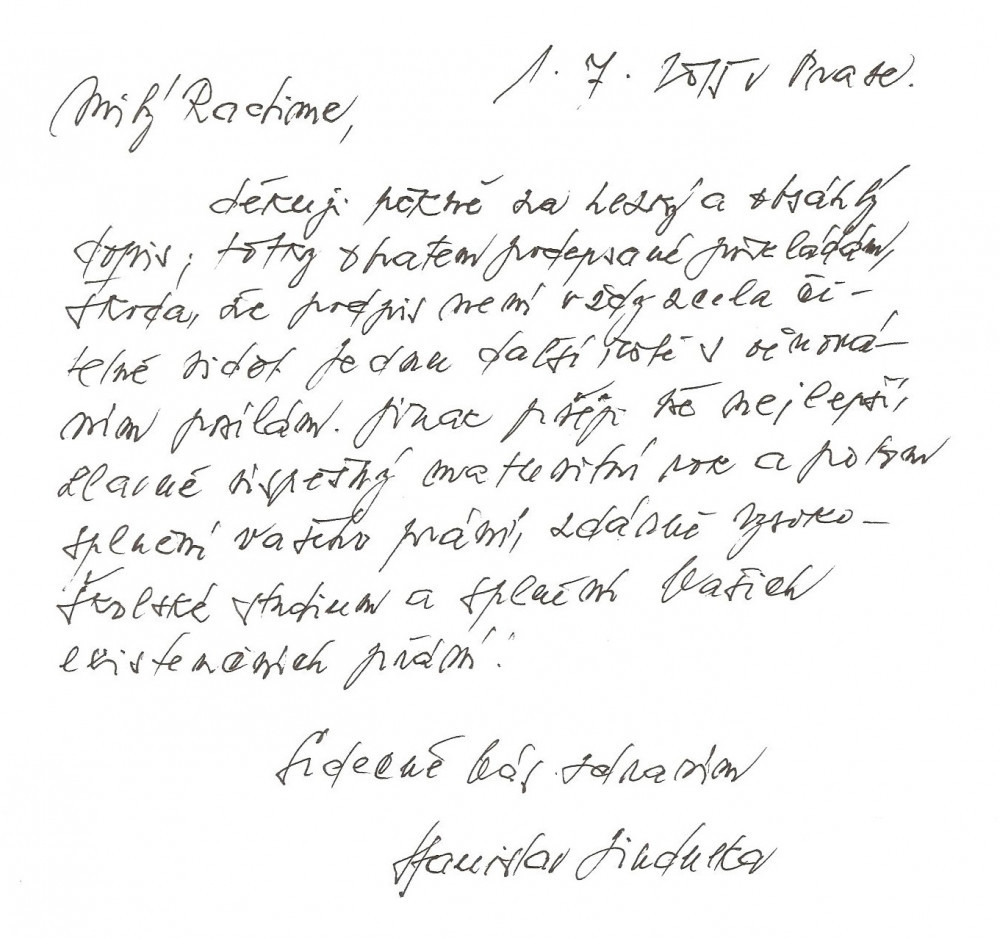 1. 7. 2015 v Praze.
Milý Radime,
děkuji pěkně za hezký a obsáhlý
dopis; fotky obratem podepsané přikládám,
škoda, že podpis není vždy zcela či-
telně vidět jednu další foto s věnová-
ním posílám. Jinak přeji to nejlepší,
hlavně úspěšný maturitní rok a potom
splnění Vašeho přání, zdárné vysoko-
školské studium a splnění Vašich
existenčních přání!
Srdečně Vás zdravím
Stanislav Zindulka